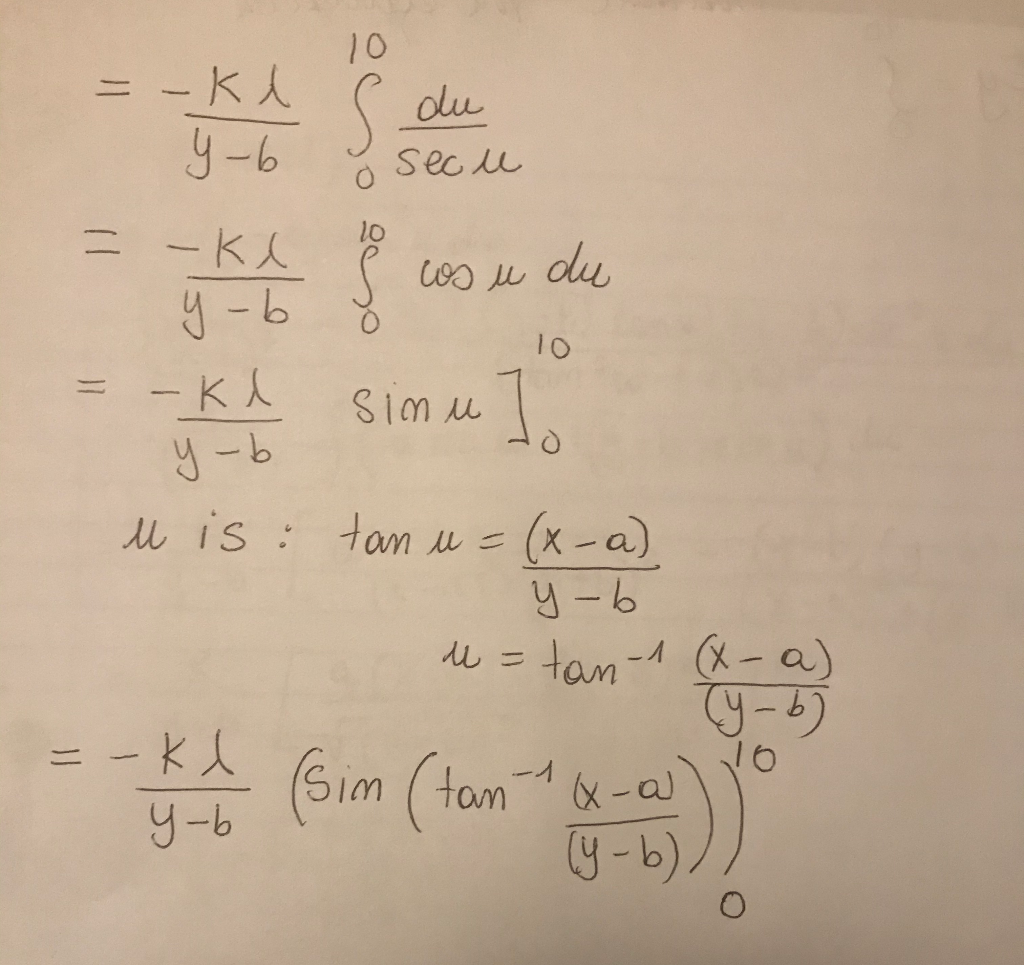 = -Kλ/(y-b) ∫₀¹⁰ du/sec u
= -Kλ/(y-b) ∫₀¹⁰ cos u du
= -Kλ/(y-b) sin u ]₀¹⁰
u is : tan u = (x-a)/(y-b)
u = tan⁻¹ (x-a)/(y-b)
= -Kλ/(y-b) (Sin (tan⁻¹ (x-a)/(y-b)))₀¹⁰